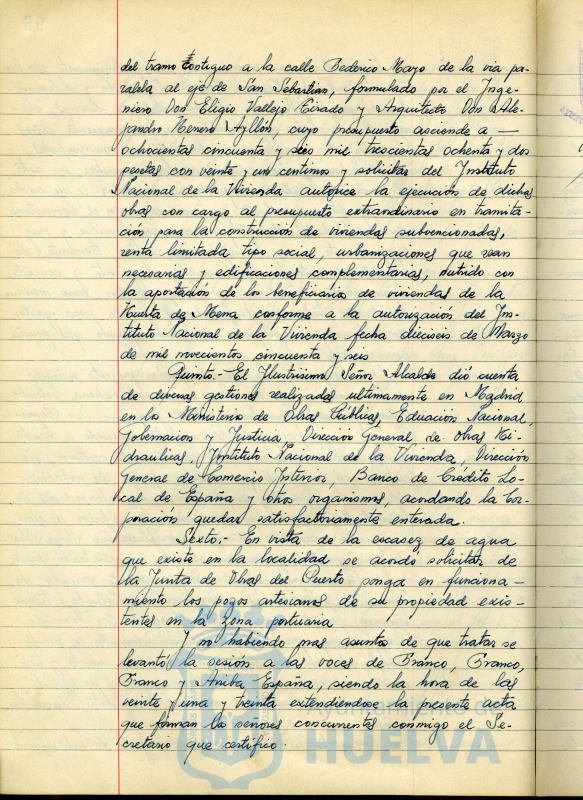 del tramo contiguo a la calle Federico Mayo de la via pa-
ralela al eje de San Sebastian, formulado por el Inge-
niero Don Eligio Vallejo Tirado y Arquitecto Don Ale-
jandro Herrero Ayllón, cuyo presupuesto asciende a —
ochocientas cincuenta y seis mil trescientas ochenta y dos
pesetas con veinte y un centimos y solicitar del Instituto
Nacional de la Vivienda autorice la ejecución de dichas
obras con cargo al presupuesto extraordinario en tramita-
ción para la construcción de viviendas subvencionadas,
renta limitada tipo social, urbanizaciones que sean
necesarias y edificaciones complementarias, nutrido con
la aportación de los beneficiarios de viviendas de la
Huerta de Mena conforme a la autorización del Ins-
tituto Nacional de la Vivienda fecha dieciseis de Marzo
de mil novecientos cincuenta y seis
Quinto.- El Ilustrisimo Señor Alcalde dió cuenta
de diversas gestiones realizadas ultimamente en Madrid
en los Ministerios de Obras Públicas, Educación Nacional,
Gobernación y Justicia, Dirección General de Obras Hi-
draulicas, Instituto Nacional de la Vivienda, Dirección
General de Comercio Interior, Banco de Crédito Lo-
cal de España y otros organismos, acordando la Cor-
poración quedar satisfactoriamente enterada.
Sexto.- En vista de la escasez de agua
que existe en la localidad se acordó solicitar de
la Junta de Obras del Puerto ponga en funciona-
miento los pozos artesianos de su propiedad exis-
tentes en la zona portuaria
Y no habiendo mas asuntos de que tratar se
levantó la sesión a las voces de Franco, Franco,
Franco y Arriba España, siendo la hora de las
veinte y una y treinta extendiendose la presente acta
que firman los señores concurrentes conmigo el Se-
cretario que certifico.
HUELVA